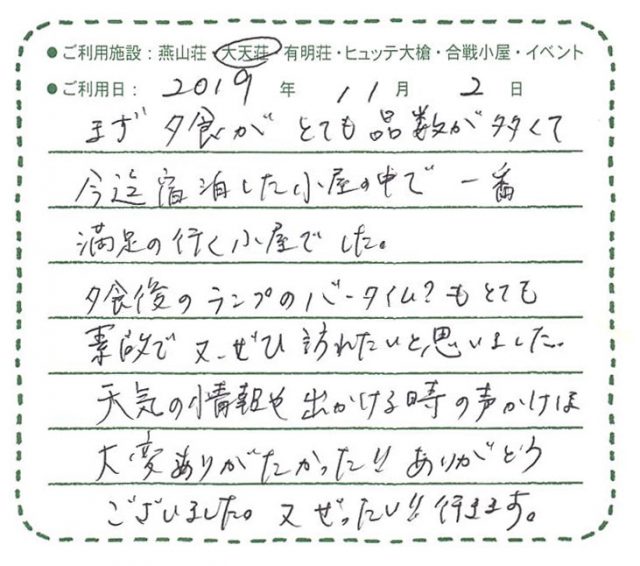 ●ご利用施設：燕山荘・大天荘・有明荘・ヒュッテ大槍・合戦小屋・イベント
●ご利用日：2019年 11月 2日
まず 夕食が とても 品数が 多くて
今迄 宿泊した小屋の中で 一番
満足の行く小屋でした。
夕食後のランプのバータイム？もとても
素敵で 又、ぜひ訪れたいと思いました。
天気の情報や 出かける時の声かけは
大変ありがたかった!! ありがとう
ございました。又 ぜったい!! 行きます。